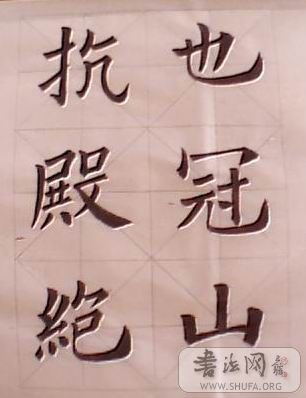 也冠山
抗殿絶
书法网
WWW.SHUFA.ORG